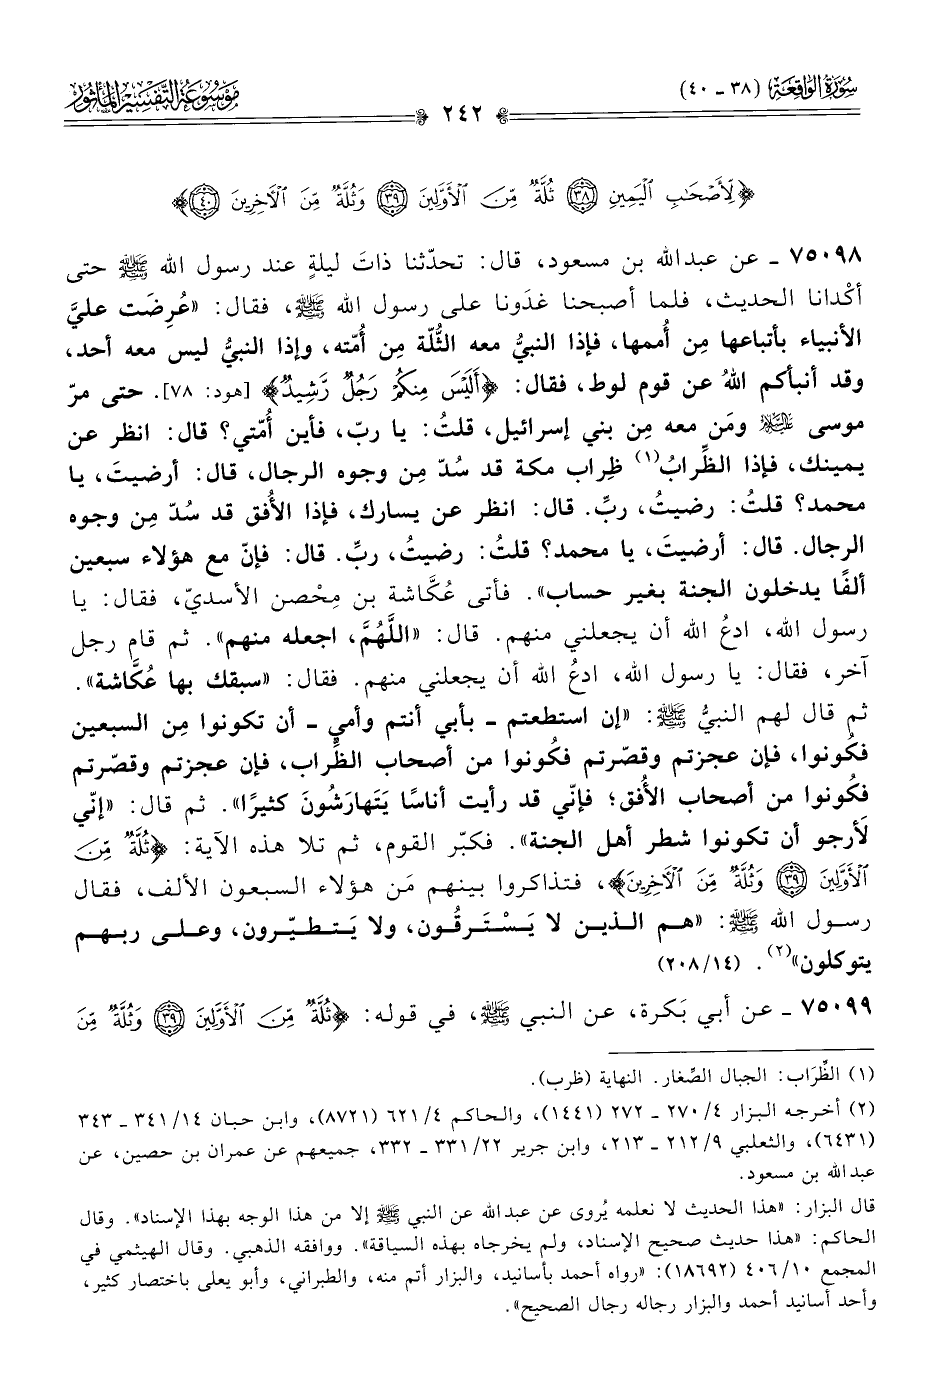 سُورَةُ الوَاقِعَة (٣٨ - ٤٠)
٢٤٢
مَوْسُوعَةُ التَّفْسِيرِ المَأْثُور
﴿لِّأَصْحَٰبِ ٱلْيَمِينِ ٣٨ ثُلَّةٌ مِّنَ ٱلْأَوَّلِينَ ٣٩ وَثُلَّةٌ مِّنَ ٱلْءَاخِرِينَ ٤٠﴾
٧٥٠٩٨ - عن عبدالله بن مسعود، قال: تحدّثنا ذاتَ ليلةٍ عند رسول الله ﷺ حتى
أكْدانا الحديث، فلما أصبحنا غدَونا على رسول الله ﷺ، فقال: «عُرِضَت عليَّ
الأنبياء بأتباعها مِن أُممها، فإذا النبيُّ معه الثُّلّة مِن أُمّته، وإذا النبيُّ ليس معه أحد،
وقد أنبأكم اللهُ عن قوم لوط، فقال: ﴿أَلَيْسَ مِنكُمْ رَجُلٌ رَّشِيدٌ﴾ [هود: ٧٨]. حتى مرّ
موسى ﵇ ومَن معه مِن بني إسرائيل، قلتُ: يا ربّ، فأين أُمّتي؟ قال: انظر عن
يمينك، فإذا الظِّرابُ(١) ظِراب مكة قد سُدّ مِن وجوه الرجال، قال: أرضيتَ، يا
محمد؟ قلتُ: رضيتُ، ربِّ. قال: انظر عن يسارك، فإذا الأُفق قد سُدّ مِن وجوه
الرجال. قال: أرضيتَ، يا محمد؟ قلتُ: رضيتُ، ربِّ. قال: فإنّ مع هؤلاء سبعين
ألفًا يدخلون الجنة بغير حساب». فأتى عُكَّاشة بن مِحْصن الأسديّ، فقال: يا
رسول الله، ادعُ الله أن يجعلني منهم. قال: «اللَّهُمَّ، اجعله منهم». ثم قام رجل
آخر، فقال: يا رسول الله، ادعُ الله أن يجعلني منهم. فقال: «سبقك بها عُكَّاشة».
ثم قال لهم النبيُّ ﷺ: «إن استطعتم - بأبي أنتم وأمي - أن تكونوا مِن السبعين
فكُونوا، فإن عجزتم وقصّرتم فكُونوا من أصحاب الظِّراب، فإن عجزتم وقصّرتم
فكُونوا من أصحاب الأُفق؛ فإنّي قد رأيت أناسًا يَتَهارَشُونَ كثيرًا». ثم قال: «إنّي
لَأرجو أن تكونوا شطر أهل الجنة». فكبّر القوم، ثم تلا هذه الآية: ﴿ثُلَّةٌ مِّنَ
ٱلْأَوَّلِينَ ٣٩ وَثُلَّةٌ مِّنَ ٱلْءَاخِرِينَ﴾، فتذاكروا بينهم مَن هؤلاء السبعون الألف، فقال
رسول الله ﷺ: «هم الذين لا يَسْتَرقُون، ولا يَتطيّرون، وعلى ربهم
يتوكلون»(٢). (١٤/٢٠٨)
٧٥٠٩٩ - عن أبي بَكرة، عن النبي ﷺ، في قوله: ﴿ثُلَّةٌ مِّنَ ٱلْأَوَّلِينَ ٣٩ وَثُلَّةٌ مِّنَ
(١) الظِّرَاب: الجبال الصِّغار. النهاية (ظرب).
(٢) أخرجه البزار ٤/ ٢٧٠ - ٢٧٢ (١٤٤١)، والحاكم ٤/ ٦٢١ (٨٧٢١)، وابن حبان ١٤/ ٣٤١ - ٣٤٣
(٦٤٣١)، والثعلبي ٩/ ٢١٢ - ٢١٣، وابن جرير ٢٢/ ٣٣١ - ٣٣٢، جميعهم عن عمران بن حصين، عن
عبدالله بن مسعود.
قال البزار: «هذا الحديث لا نعلمه يُروى عن عبدالله عن النبي ﷺ إلا من هذا الوجه بهذا الإسناد». وقال
الحاكم: «هذا حديث صحيح الإسناد، ولم يخرجاه بهذه السياقة». ووافقه الذهبي. وقال الهيثمي في
المجمع ١٠/ ٤٠٦ (١٨٦٩٢): «رواه أحمد بأسانيد، والبزار أتم منه، والطبراني، وأبو يعلى باختصار كثير،
وأحد أسانيد أحمد والبزار رجاله رجال الصحيح».